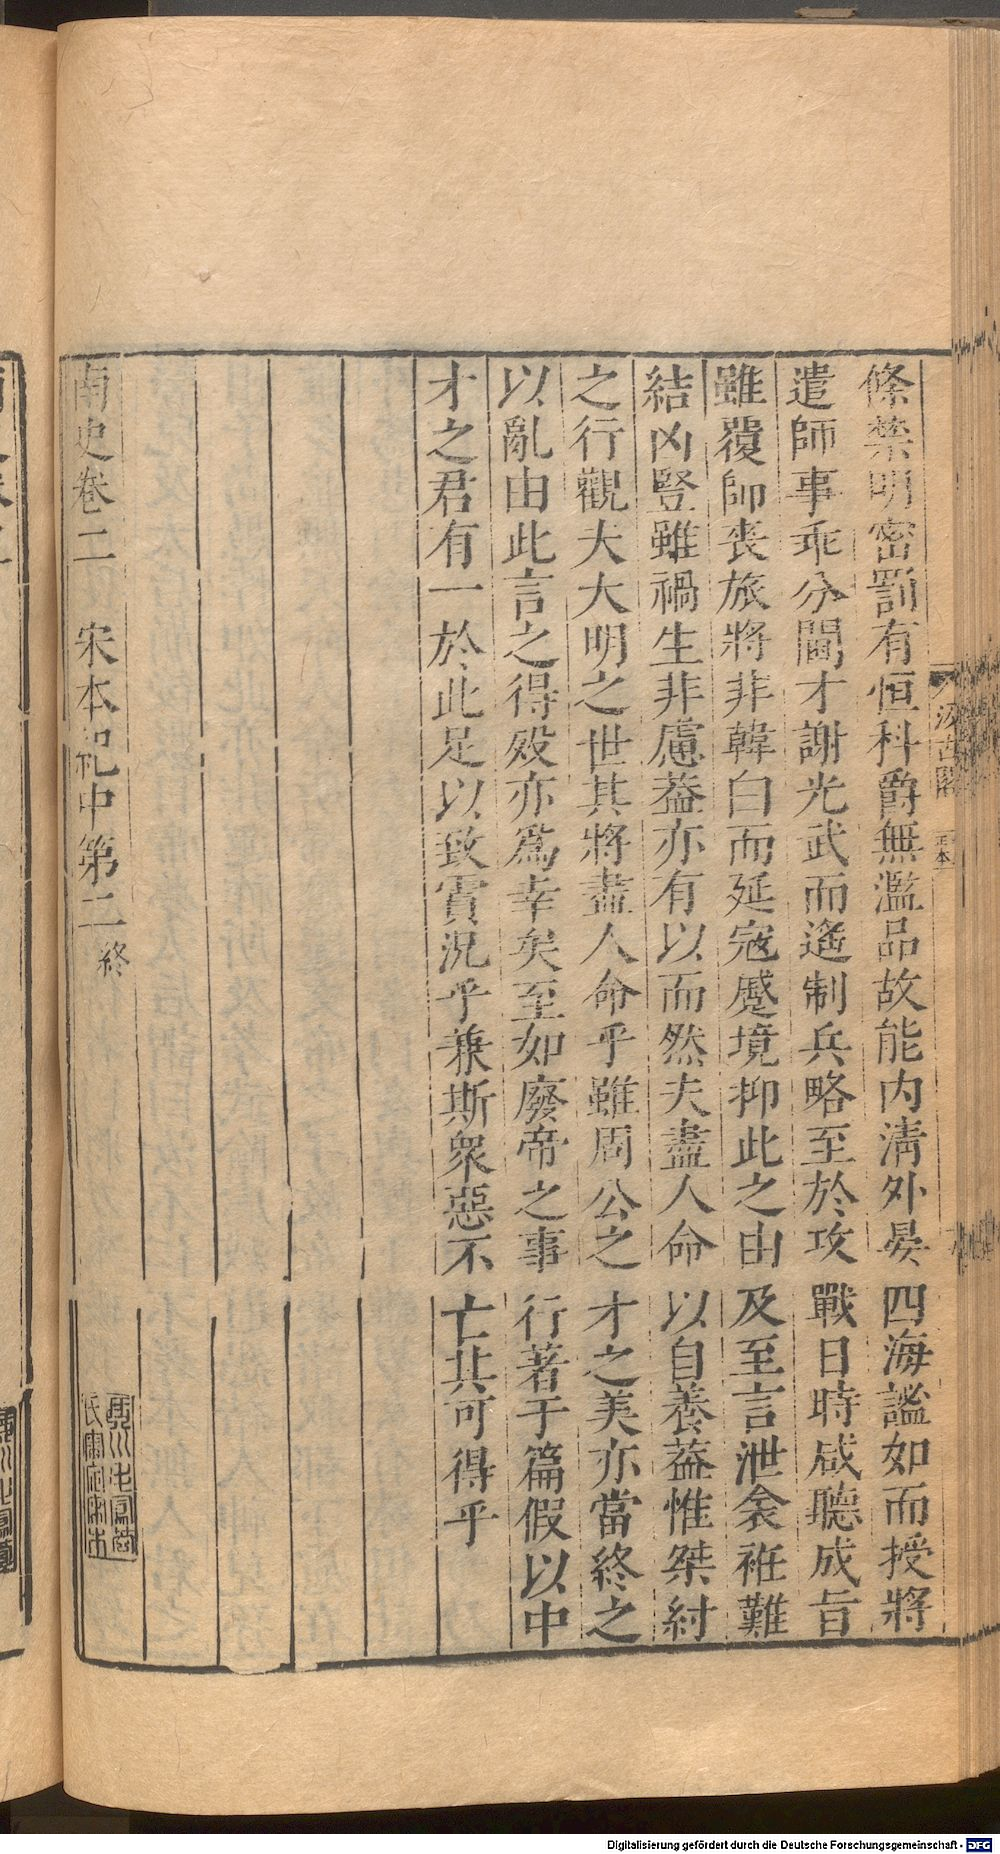 條禁明密罰有恒科爵無濫品故能内清外晏四海謐如而授將
遣師事乖分閫才謝光武而遙制兵略至於攻戰日時咸聽成旨
雖覆師喪旅將非韓白而延寇蹙境抑此之由及至言泄衾袵難
結凶豎雖禍生非慮葢亦有以而然夫盡人命以自養葢惟桀紂
之行觀夫大明之世其將盡人命乎雖周公之才之美亦當終之
以亂由此言之得殁亦爲幸矣至如廢帝之事行著于篇假以中
才之君有一於此足以致霣況乎兼斯衆惡不亡其可得乎
南史卷二 宋本紀中第二終
汲古閣
正本
Digitalisierung gefördert durch die Deutsche Forschungsgemeinschaft - DFG